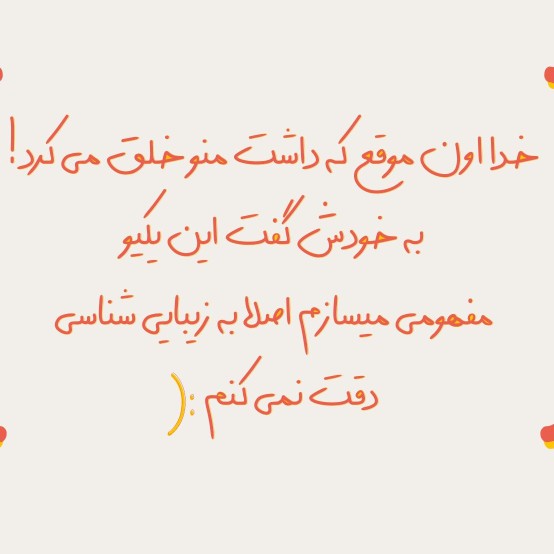 خدا اون موقع که داشت منو خلق می کرد!
به خودش گفت این یکیو
مفهومی میسازم اصلا به زیبایی شناسی
دقت نمی کنم :(